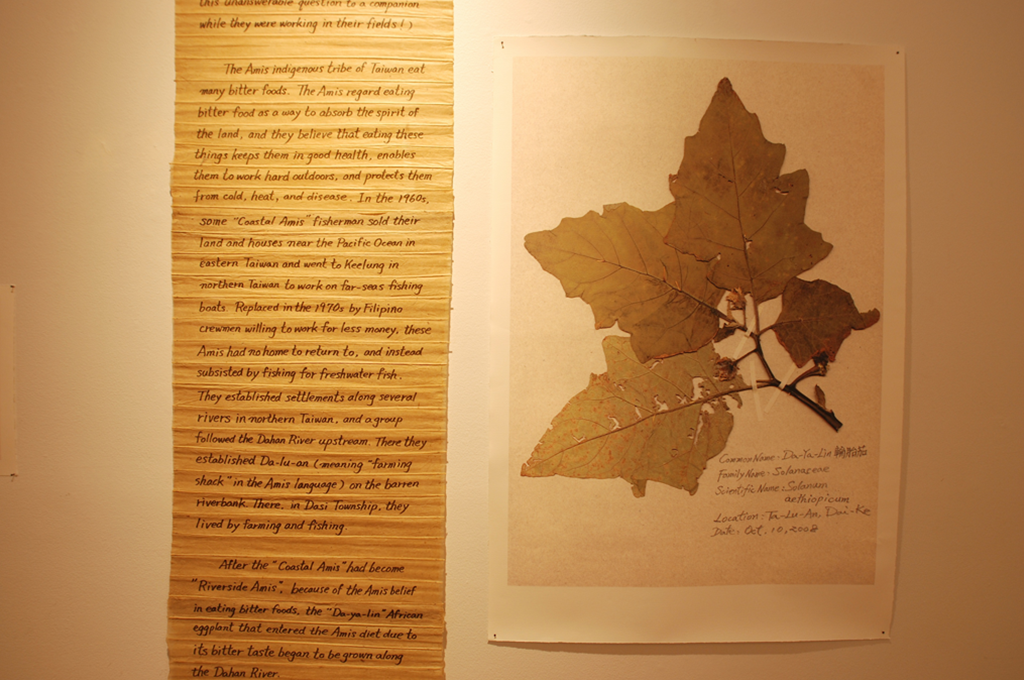 this unanswerable question to a companion
while they were working in their fields!)
The Amis indigenous tribe of Taiwan eat
many bitter foods. The Amis regard eating
bitter food as a way to absorb the spirit of
the land, and they believe that eating these
things keeps them in good health, enables
them to work hard outdoors, and protects them
from cold, heat, and disease. In the 1960s,
some "Coastal Amis" fisherman sold their
land and houses near the Pacific Ocean in
eastern Taiwan and went to Keelung in
northern Taiwan to work on far-seas fishing
boats. Replaced in the 1970s by Filipino
crewmen willing to work for less money, these
Amis had no home to return to, and instead
subsisted by fishing for freshwater fish.
They established settlements along several
rivers in northern Taiwan, and a group
followed the Dahan River upstream. There they
established Da-lu-an (meaning "farming
shack" in the Amis language) on the barren
riverbank. There, in Daxi Township, they
lived by farming and fishing.
After the "Coastal Amis" had become
"Riverside Amis", because of the Amis belief
in eating bitter foods, the "Da-ya-lin" African
eggplant that entered the Amis diet due to
its bitter taste began to be grown along
the Dahan River.
Common Name: Da-Ya-Lin 輪胎茄
Family Name: Solanaceae
Scientific Name: Solanum
aethiopicum
Location: Ta-Lu-An, Dai-Ke
Date: Oct. 10, 2008